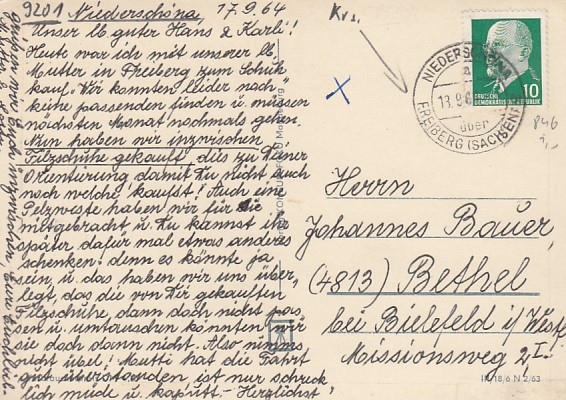 9201 Niederschöna 17.9.64
Unser lb guter Hans & Karli!
Heute war ich mit unserer lb.
Mutter in Freiberg zum Schuh
kauf. Wir konnten leider noch
keine passenden finden u müssen
nächsten Monat nochmals gehen.
Nun haben wir inzwischen
Filzschuhe gekauft! dies zu Deiner
Orientierung damit Du nicht auch
noch welche kaufst! Auch eine
Pelzweste haben wir für sie
mitgebracht u. Du kannst ihr
später dafür mal etwas anderes
schenken! denn es könnte ja
sein, u. das haben wir uns über,
legt, das die von Dir gekauften
Filzschuhe, dann doch nicht pas,
sen u. umtauschen könnten wir
sie doch dann nicht. Also nimms
nicht übel! Mutti hat die Fahrt
gut überstanden, ist nur schreck
lich müde u. kaputt.- Herzlichst
Krs.
NIEDERSCHÖNA
über
FREIBERG (SACHSEN)
10
DEUTSCHE
DEMOKRATISCHE REPUBLIK
P46
Herrn
Johannes Bauer,
(4813) Bethel
bei Bielefeld i/Westf
Missionsweg 2, I.
III/18/6 N 2/63